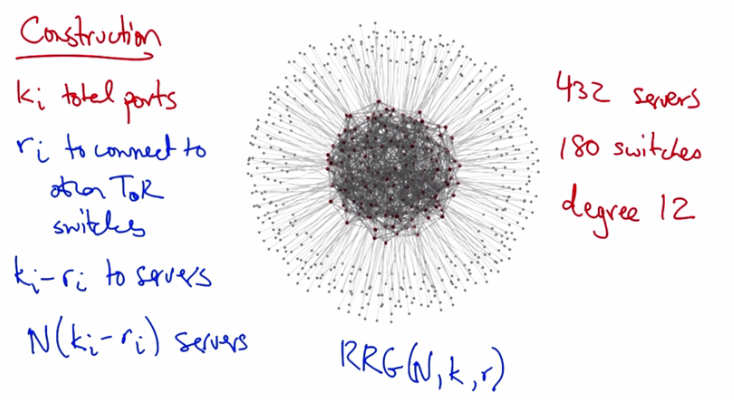 Construction
ki total ports
ri to connect to
other ToR
switches
ki-ri to servers
N(ki-ri) servers
RRG(N, k, r)
432 servers
180 switches
degree 12